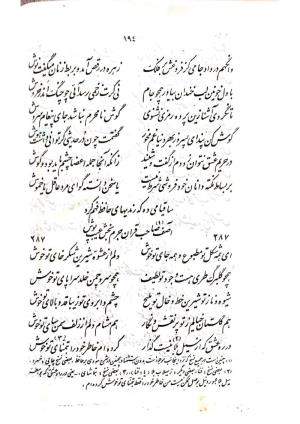 ۱۹۴
وانگهم در داد جامی کز فروغش بر فلک زهره در رقص آمد و بربط زنان میگفت نوش
با دل خونین لب خندان بیاور همچو جام نی گرت زخمی رسد آئی چو چنگ اندر خروش
تا نگردی آشنا زین پرده رمزی نشنوی گوش نامحرم نباشد جای پیغام سروش
گوش کن پند ای پسر وز بهر دنیا غم مخور گفتمت چون در حدیثی گر توانی داشت هوش
در حریم عشق نتوان زد دم از گفت و شنید زانکه آنجا جمله اعضا چشم باید بود و گوش
بر بساط نکته دانان خود فروشی شرط نیست یا سخن دانسته گو ای مرد عاقل یا خموش
ساقیا می ده که رندیهای حافظ فهم کرد
آصف صاحب قران جرم بخش عیب پوش
۲۸۷ ۲۸۷
ای همه شکل تو مطبوع و همه جای تو خوش دلم از عشوهٔ شیرین شکر خای تو خوش
همچو گلبرگ طری هست وجود تو لطیف همچو سرو چمن خلد سراپای تو خوش
شیوه و ناز تو شیرین خط و خال تو ملیح چشم و ابروی تو زیبا قد و بالای تو خوش
هم گلستان خیالم ز تو پر نقش و نگار هم مشام دلم از زلف سمن سای تو خوش
در ره عشق که از سیل بلا نیست گذار کرده ام خاطر خود را بتمنای تو خوش